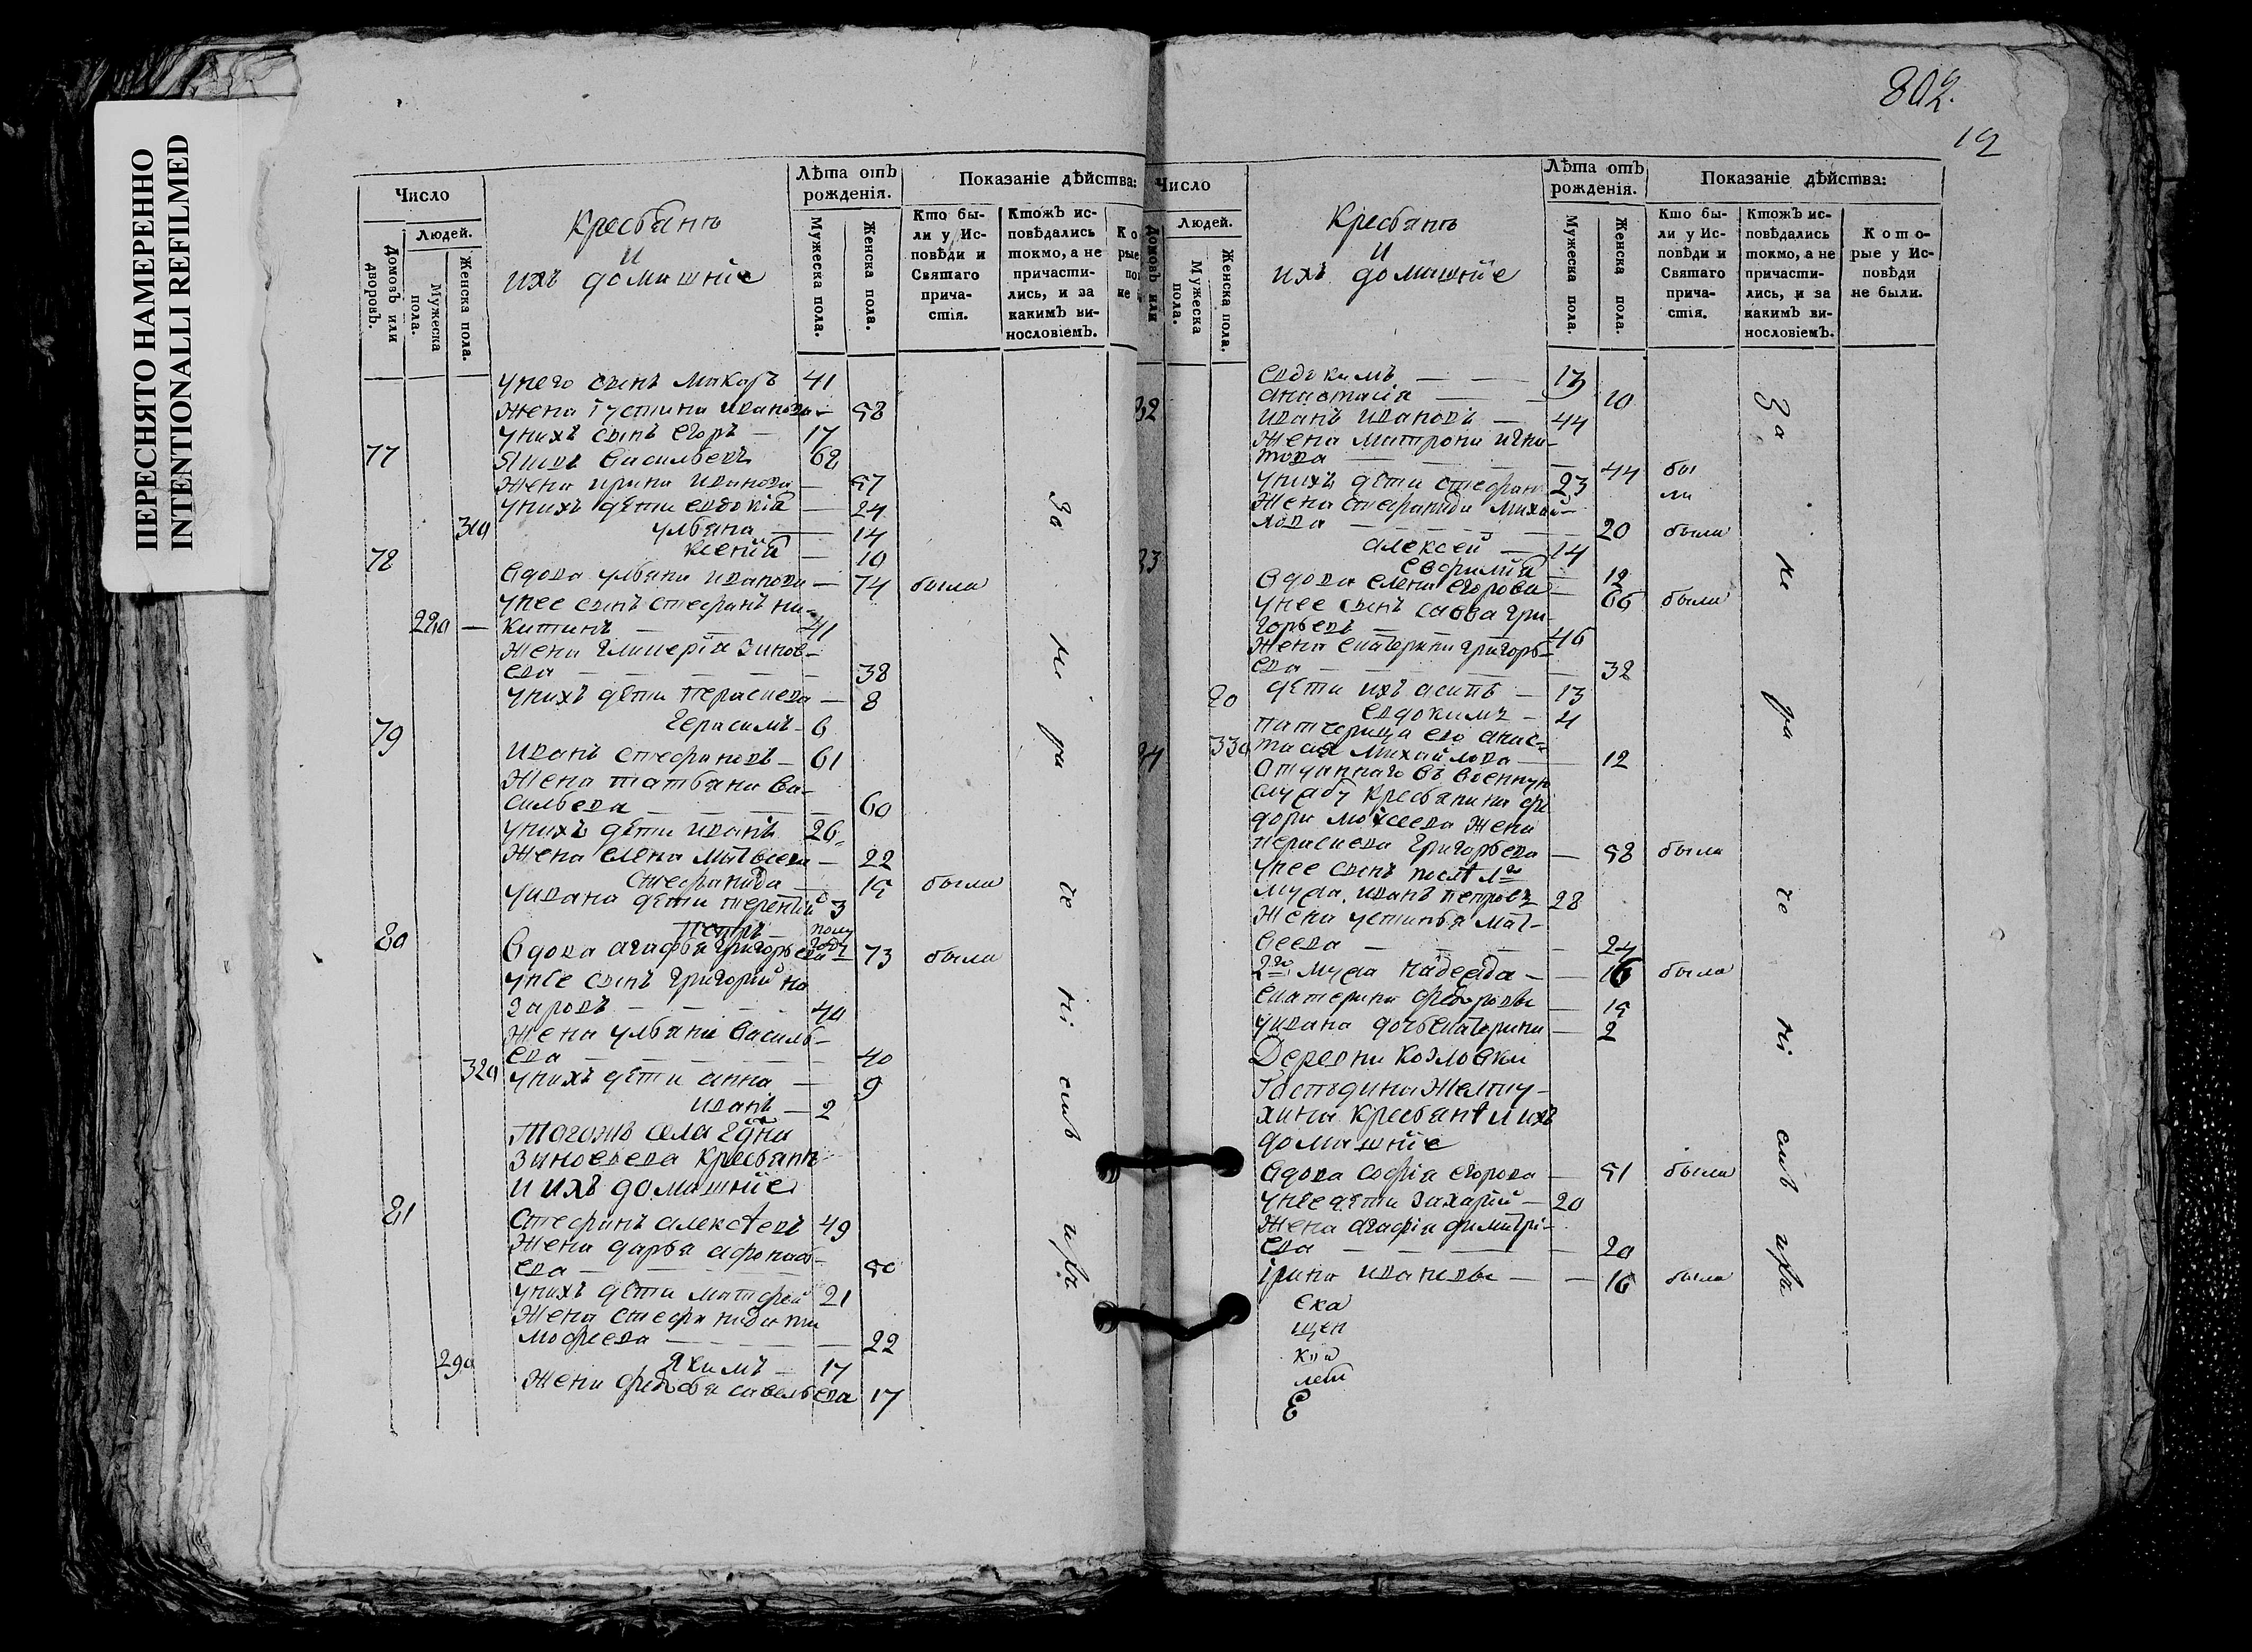 ПЕРЕСНЯТО НАМЕРЕННО
INTENTIONALLI REFILMED
802.
12
Число
Людей.
Домовъ или дворовъ.
Мужеска пола.
Женска пола.
Крестьянъ
и
ихъ домашніе
Лѣта отъ рожденія.
Мужеска пола.
Женска пола.
Показаніе дѣйства:
Кто были у Исповѣди и Святаго причастія.
Ктожъ исповѣдались токмо, а не причастились, и за какимъ винословіемъ.
унего сынъ Макаръ 41
жена Іустина Иванова — 58
унихъ сынъ Егоръ — 17
77 Яковъ Васильевъ 62
жена Ирина Иванова — 57
унихъ дѣти Евдокія — 24
310 Ульяна — 14
Ксенія — 10
78 Вдова Ульяна Иванова — 74 была
унее сынъ Стефанъ Ни-
220 — китинъ — 41
жена Гликерія Зинов-
ева — 38
унихъ дѣти Параскева — 8
Герасимъ — 6
79 Иванъ Стефановъ — 61
жена Татьяна Ва-
сильева — 60
унихъ дѣти Иванъ 26
жена Елена Матвеева — 22
Стефанида — 15 была
уивана дѣти Терентій 3
Петръ — полу году
80 Вдова Агафья Григорьева — 73 была
унее сынъ Григорій На
заровъ — 40
жена Ульяна Василь-
ева — 40
320 унихъ дѣти Анна — 9
Иванъ — 2
Тогожъ села Гдна
Зиновьева крестьянъ
и ихъ домашніе
81 Стефанъ Алексѣевъ 49
жена Дарья Афонась-
ева — 50
унихъ дѣти Матфей 21
жена Стефанида Ти
мофеева — 22
290 Якимъ — 17
жена Федосья Савельева 17
За не ра че ні емъ ихъ
Число
Людей.
Домовъ или
Мужеска пола.
Женска пола.
Крестьянъ
и
ихъ домашніе
Лѣта отъ рожденія.
Мужеска пола.
Женска пола.
Показаніе дѣйства:
Кто были у Исповѣди и Святаго причастія.
Ктожъ исповѣдались токмо, а не причастились, и за какимъ винословіемъ.
Которые у Исповѣди не были.
Евдокимъ — 13
Анастасія — 10
82 Иванъ Ивановъ — 44
жена Матрона Ники-
това — 44 бы
унихъ дѣти Стефанъ 23 ли
жена Стефанида Михай-
лова — 20 была
Алексей — 14
83 Евфимія — 12
Вдова Елена Егорова — 66 была
унее сынъ Савва Гри-
горьевъ — 46
жена Екатерина Григорь-
ева — 38
20 дѣти ихъ Асипъ — 13
Евдокимъ — 4
патчерица его Анас-
84 330 тасія Михайлова — 12
Отданнаго въ военную
службу крестьянина Фе
дора Моисеева жена
Параскева Григорьева — 58 была
унее сынъ послѣ 1го
мужа Иванъ Петровъ 28
жена Устинья Мат-
веева — 24
2го мужа Надежда — 16 была
Екатерина Федоровы — 15
уивана дочь Екатерина — 2
Деревни Козловки
Господина Желту-
хина крестьянѣ и ихъ
домашніе
Вдова Софія Егорова — 51 была
унее дѣти Захарій — 20
жена Агафія Димитрі-
ева — 20
Ірина Ивановы — 16 была
За не ра че ні емъ ихъ